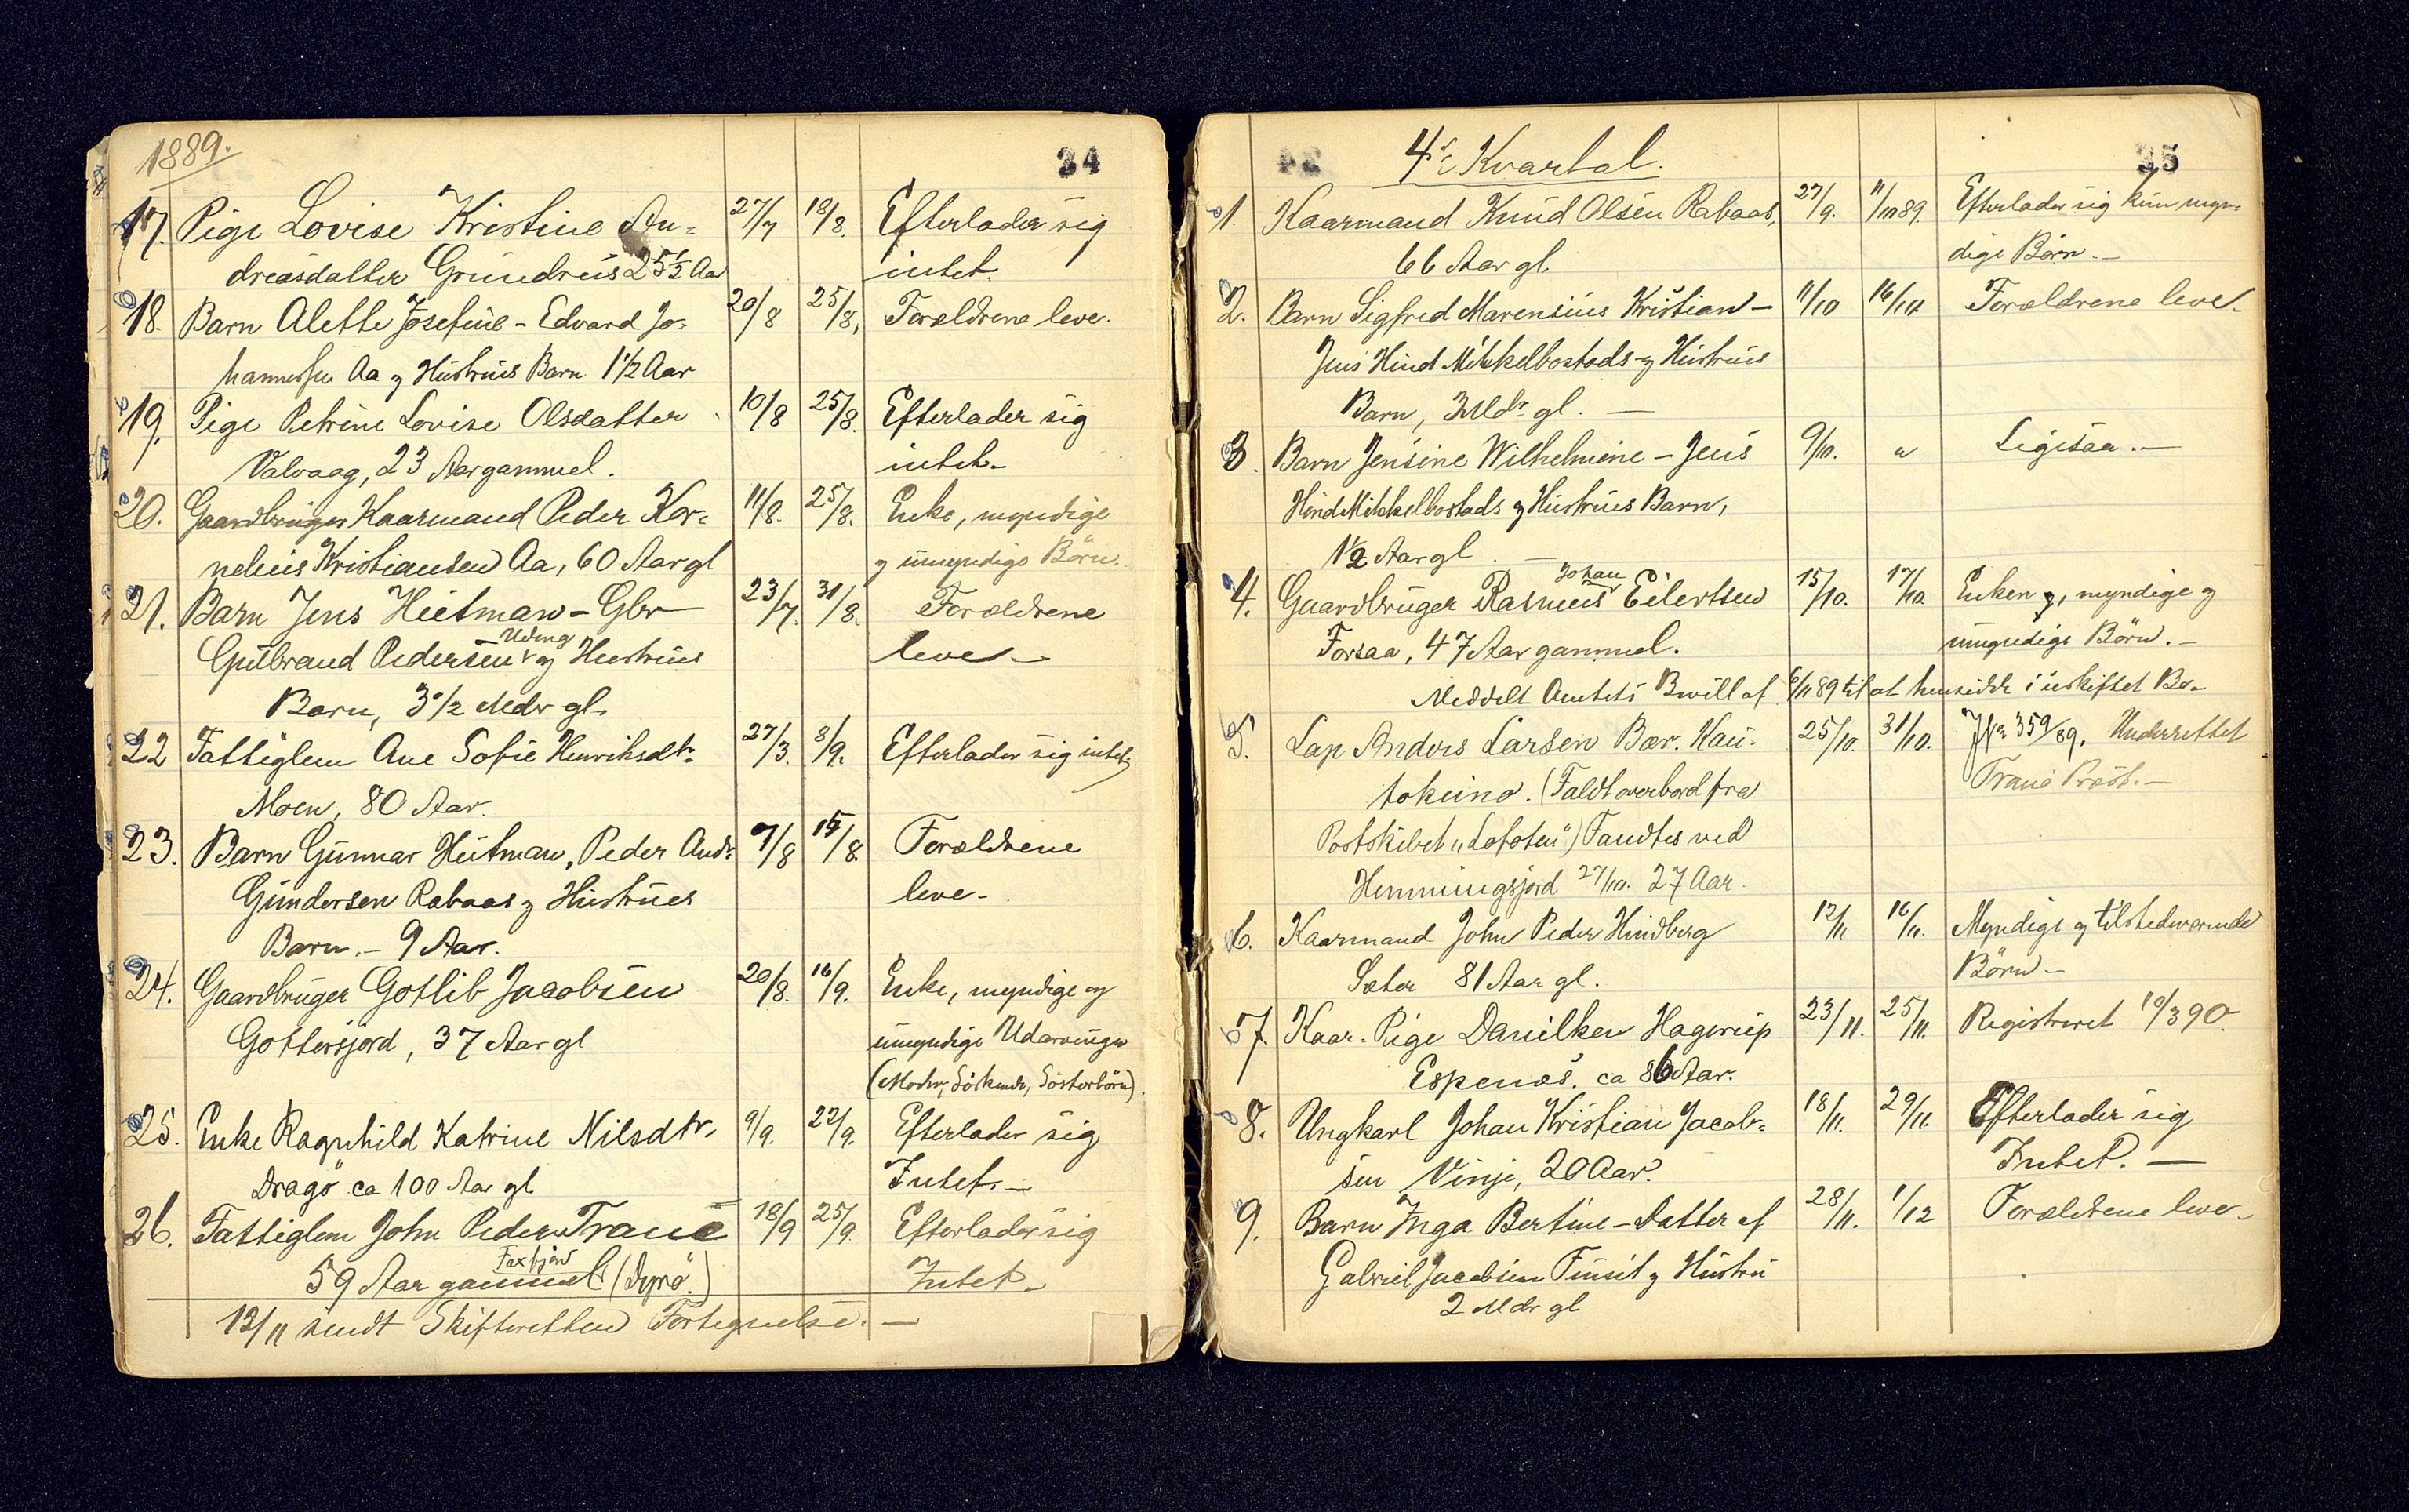 1889.
34
17. Pige Lovise Kristine An= 27/7 18/8. Efterlader sig
dreasdatter Grundreis 25½ Aar intet.
18. Barn Alette Josefine - Edvard Jo= 20/8 25/8, Forældrene leve.
hannessen Aa og Hustrues Barn 1½ Aar
19. Pige Petrine Lovise Olsdatter 10/8 25/8. Efterlader sig
Valvaag, 23 Aar gammel. intet.
20. Gaardbruger Kaarmand Peder Kor= 11/8. 25/8. Enke, myndige
nelius Kristiansen Aa, 60 Aar gl og umyndige Börn.
21. Barn Jens Hietman - Gbr 23/7. 31/8. Forældrene
Uding
Gulbrand Pedersen og Hustrues leve.
Barn, 3½ Mdr gl.
22 Fattiglem Ane Sofie Henriksdtr 27/3. 8/9. Efterlader sig intet.
Moen, 80 Aar.
23. Barn Gunnar Heitman, Peder Andr. 7/8 15/8. Forældrene
Gundersen Rabaas og Hustrues leve.
Barn. - 9 Aar.
24. Gaardbruger Gotlib Jacobsen 20/8. 16/9. Enke, myndige og
Gottersjord, 37 Aar gl umyndige Udarvinger
(Moder, Söskende, Sösterbörn).
25. Enke Ragnhild Katrine Nilsdtr. 9/9. 22/9. Efterlader sig
Dragö ca 100 Aar gl Intet. -
26. Fattiglem John Peder Tranö 18/9 25/9. Efterlader sig
Faxfjord
59 Aar gammel (Dyrö.) Intet.
12/11 sendt Skifteretten Fortegnelse. -
35
4de Kvartal.
1. Kaarmand Knud Olsen Rabaas, 27/9. 11/10 89. Efterlader sig kun myn=
66 Aar gl. dige Börn. -
2. Barn Sigfred Marensius Kristian - 11/10 16/10 Forældrene leve.
Jens Hind Mikkelbostads og Hustrues
Barn, 3 Mdr gl. -
3. Barn Jensine Wilhelmine - Jens 9/10. " Ligesaa. -
Hind Mikkelbostads og Hustrues Barn,
1½ Aar gl. -
Johan
4. Gaardbruger Rasmus Eilertsen 15/10. 17/10. Enken, myndige og
Forsaa, 47 Aar gammel. umyndige Börn. -
Meddelt Amtets Bevill af 6/11 89 til at hensidde i uskiftet Bo.
5. Lap Anders Larsen Bær. Kau= 25/10. 31/10. JNr 359/89. Underrettet
tokeino. (Faldt overbord fra Tranö Præst. -
Postskibet "Lofoten") Fandtes ved
Hemmingsjord 27/10. 27 Aar.
6. Kaarmand John Peder Hindberg 12/11 16/11. Myndige og tilstedeværende
Sæter 81 Aar gl. Börn -
7. Kaar. Pige Danilken Hagerup 23/11. 25/11. Registreret 10/3 90.
Espenæs. ca 86 Aar.
8. Ungkarl Johan Kristian Jacob= 18/11. 29/11. Efterlader sig
sen Vinje, 20 Aar. Intet. -
9. Barn Inga Bertine - Datter af 28/11. 1/12 Forældrene leve.
Gabriel Jacobsen Finset og Hustru
2 Mdr gl